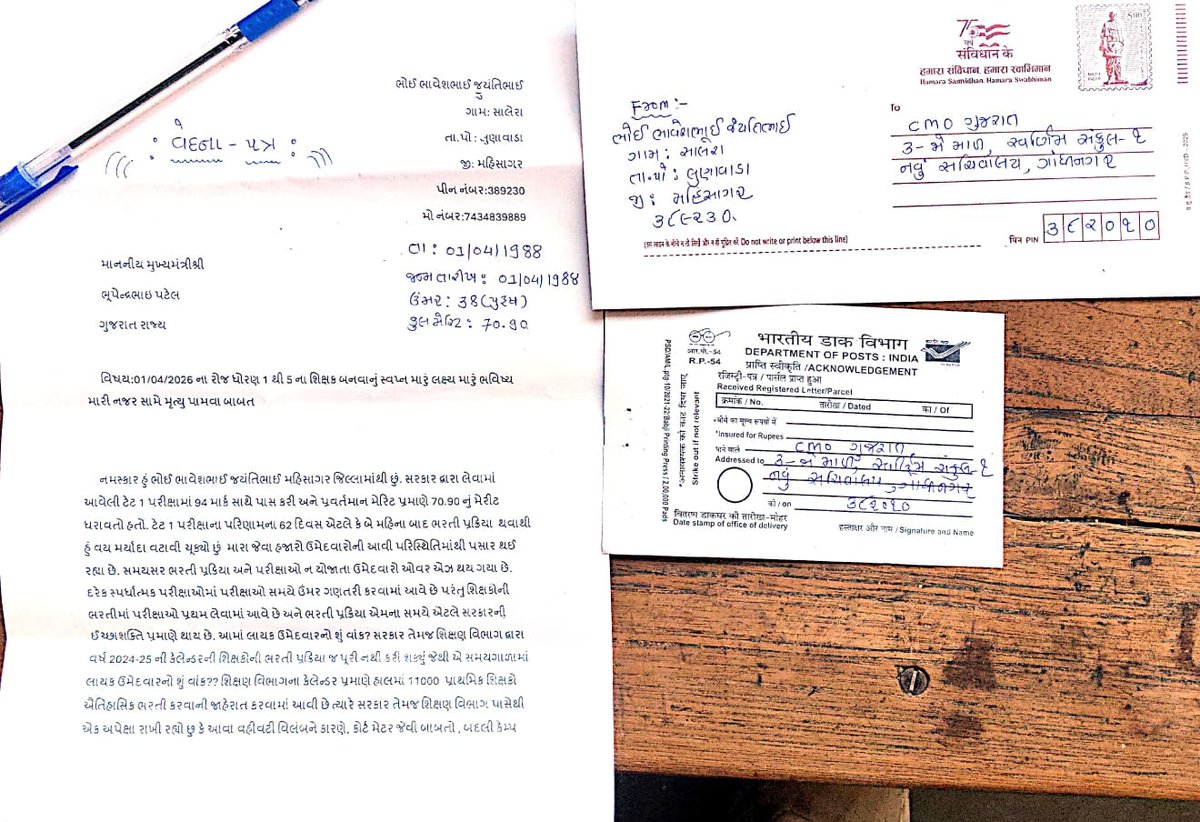 ભોઈ ભાવેશભાઈ જયંતિભાઈ
ગામ: સાલેરા
તા.પો : લુણાવાડા
જી: મહિસાગર
પીન નંબર:389230
મો નંબર:7434839889
વેદના - પત્ર
તા : 01/04/1988
જન્મ તારીખ : 01/04/1988
ઉંમર : 38 (પુરુષ)
કુલ મેરિટ : 70.90
માનનીય મુખ્યમંત્રીશ્રી
ભૂપેન્દ્રભાઇ પટેલ
ગુજરાત રાજ્ય
વિષય:01/04/2026 ના રોજ ધોરણ 1 થી 5 ના શિક્ષક બનવાનું સ્વપ્ન મારું લક્ષ્ય મારું ભવિષ્ય
મારી નજર સામે મૃત્યુ પામવા બાબત
નમસ્કાર હું ભોઈ ભાવેશભાઈ જયંતિભાઈ મહિસાગર જિલ્લામાંથી છું. સરકાર દ્વારા લેવામાં
આવેલી ટેટ 1 પરીક્ષામાં 94 માર્ક સાથે પાસ કરી અને પ્રવર્તમાન મેરિટ પ્રમાણે 70.90 નું મેરીટ
ધરાવતો હતો. ટેટ 1 પરીક્ષાના પરિણામના 62 દિવસ એટલે કે બે મહિના બાદ ભરતી પ્રક્રિયા થવાથી
હું વય મર્યાદા વટાવી ચૂક્યો છું મારા જેવા હજારો ઉમેદવારોની આવી પરિસ્થિતિમાંથી પસાર થઈ
રહ્યા છે. સમયસર ભરતી પ્રક્રિયા અને પરીક્ષાઓ ન યોજાતા ઉમેદવારો ઓવર એઝ થય ગયા છે.
દરેક સ્પર્ધાત્મક પરીક્ષાઓમાં પરીક્ષાઓ સમયે ઉંમર ગણતરી કરવામાં આવે છે પરંતુ શિક્ષકોની
ભરતીમાં પરીક્ષાઓ પ્રથમ લેવામાં આવે છે અને ભરતી પ્રક્રિયા એમના સમયે એટલે સરકારની
ઈચ્છાશક્તિ પ્રમાણે થાય છે. આમાં લાયક ઉમેદવારનો શું વાંક? સરકાર તેમજ શિક્ષણ વિભાગ દ્વારા
વર્ષ 2024-25 ની કેલેન્ડરની શિક્ષકોની ભરતી પ્રક્રિયા જ પૂરી નથી કરી શક્યું જેથી એ સમયગાળામાં
લાયક ઉમેદવારનો શું વાંક?? શિક્ષણ વિભાગના કેલેન્ડર પ્રમાણે હાલમાં 11000 પ્રાથમિક શિક્ષકો
ઐતિહાસિક ભરતી કરવાની જાહેરાત કરવામાં આવી છે ત્યારે સરકાર તેમજ શિક્ષણ વિભાગ પાસેથી
એક અપેક્ષા રાખી રહ્યો છુ કે આવા વહીવટી વિલંબને કારણે, કોર્ટ મેટર જેવી બાબતો , બદલી કેમ્પ
75
वर्ष
संविधान के
हमारा संविधान, हमारा स्वाभिमान
Hamara Samvidhan, Hamara Swabhiman
From :-
ભોઈ ભાવેશભાઈ જયંતિભાઈ
ગામ : સાલેરા
તા.પો : લુણાવાડા
જી : મહિસાગર
૩૮૯૨૩૦.
To
CMO ગુજરાત
૩- જો માળ, સ્વર્ણિમ સંકુલ-૧
નવું સચિવાલય, ગાંધીનગર
Do not write or print below this line)
पिन PIN ૩૮૨૦૧૦
भारतीय डाक विभाग
DEPARTMENT OF POSTS : INDIA
आर.पी.-54
R.P.-54
प्राप्ति स्वीकृति /ACKNOWLEDGEMENT
रजिस्ट्री-पत्र / पार्सल प्राप्त हुआ
Received Registered Letter/Parcel
क्रमांक / No. तारीख / Dated का / Of
*बीमे का मूल्य रुपयों में
*Insured for Rupees
पाने वाले CMO ગુજરાત
Addressed to ૩- જો માળ, સ્વર્ણિમ સંકુલ-૧
નવું સચિવાલય, ગાંધીનગર
को / on ૩૮૨૦૧૦
वितरण डाकघर की तारीख-मोहर
Date stamp of office of delivery
हस्ताक्षर और नाम / Signature and Name
*अनावश्यक को काट दिया जाए
Strike out if not relevant